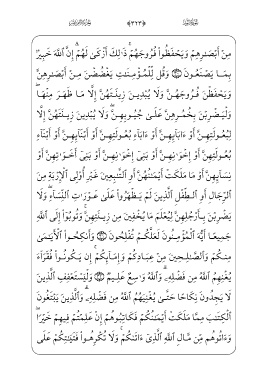 مِنْ أَبْصَـٰرِهِمْ وَيَحْفَظُوا۟ فُرُوجَهُمْ ۚ ذَٰلِكَ أَزْكَىٰ لَهُمْ ۗ إِنَّ ٱللَّهَ خَبِيرٌۢ
بِمَا يَصْنَعُونَ ۝ وَقُل لِّلْمُؤْمِنَـٰتِ يَغْضُضْنَ مِنْ أَبْصَـٰرِهِنَّ
وَيَحْفَظْنَ فُرُوجَهُنَّ وَلَا يُبْدِينَ زِينَتَهُنَّ إِلَّا مَا ظَهَرَ مِنْهَا ۖ
وَلْيَضْرِبْنَ بِخُمُرِهِنَّ عَلَىٰ جُيُوبِهِنَّ ۖ وَلَا يُبْدِينَ زِينَتَهُنَّ إِلَّا
لِبُعُولَتِهِنَّ أَوْ ءَابَآئِهِنَّ أَوْ ءَابَآءِ بُعُولَتِهِنَّ أَوْ أَبْنَآئِهِنَّ أَوْ أَبْنَآءِ
بُعُولَتِهِنَّ أَوْ إِخْوَٰنِهِنَّ أَوْ بَنِىٓ إِخْوَٰنِهِنَّ أَوْ بَنِىٓ أَخَوَٰتِهِنَّ أَوْ
نِسَآئِهِنَّ أَوْ مَا مَلَكَتْ أَيْمَـٰنُهُنَّ أَوِ ٱلتَّـٰبِعِينَ غَيْرِ أُو۟لِى ٱلْإِرْبَةِ مِنَ
ٱلرِّجَالِ أَوِ ٱلطِّفْلِ ٱلَّذِينَ لَمْ يَظْهَرُوا۟ عَلَىٰ عَوْرَٰتِ ٱلنِّسَآءِ ۖ وَلَا
يَضْرِبْنَ بِأَرْجُلِهِنَّ لِيُعْلَمَ مَا يُخْفِينَ مِن زِينَتِهِنَّ ۚ وَتُوبُوٓا۟ إِلَى ٱللَّهِ
جَمِيعًا أَيُّهَ ٱلْمُؤْمِنُونَ لَعَلَّكُمْ تُفْلِحُونَ ۝ وَأَنكِحُوا۟ ٱلْأَيَـٰمَىٰ
مِنكُمْ وَٱلصَّـٰلِحِينَ مِنْ عِبَادِكُمْ وَإِمَآئِكُمْ ۚ إِن يَكُونُوا۟ فُقَرَآءَ
يُغْنِهِمُ ٱللَّهُ مِن فَضْلِهِۦ ۗ وَٱللَّهُ وَٰسِعٌ عَلِيمٌ ۝ وَلْيَسْتَعْفِفِ ٱلَّذِينَ
لَا يَجِدُونَ نِكَاحًا حَتَّىٰ يُغْنِيَهُمُ ٱللَّهُ مِن فَضْلِهِۦ ۗ وَٱلَّذِينَ يَبْتَغُونَ
ٱلْكِتَـٰبَ مِمَّا مَلَكَتْ أَيْمَـٰنُكُمْ فَكَاتِبُوهُمْ إِنْ عَلِمْتُمْ فِيهِمْ خَيْرًا ۖ
وَءَاتُوهُم مِّن مَّالِ ٱللَّهِ ٱلَّذِىٓ ءَاتَىٰكُمْ ۚ وَلَا تُكْرِهُوا۟ فَتَيَـٰتِكُمْ عَلَى